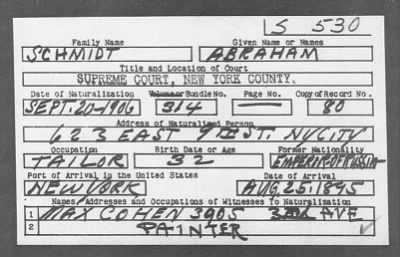 S 530
Family Name Given Name or Names
SCHMIDT ABRAHAM
Title and Location of Court
SUPREME COURT, NEW YORK COUNTY.
Date of Naturalization Volume or Bundle No. Page No. Copy of Record No.
SEPT. 20-1906 314 — 80
Address of Naturalized Person
623 EAST 9TH ST. NYCITY
Occupation Birth Date or Age Former Nationality
TAILOR 32 EMPEROR OF RUSSIA
Port of Arrival in the United States Date of Arrival
NEW YORK AUG. 25, 1895
Names, Addresses and Occupations of Witnesses To Naturalization
1 MAX COHEN 3905 3RD AVE
2 PAINTER